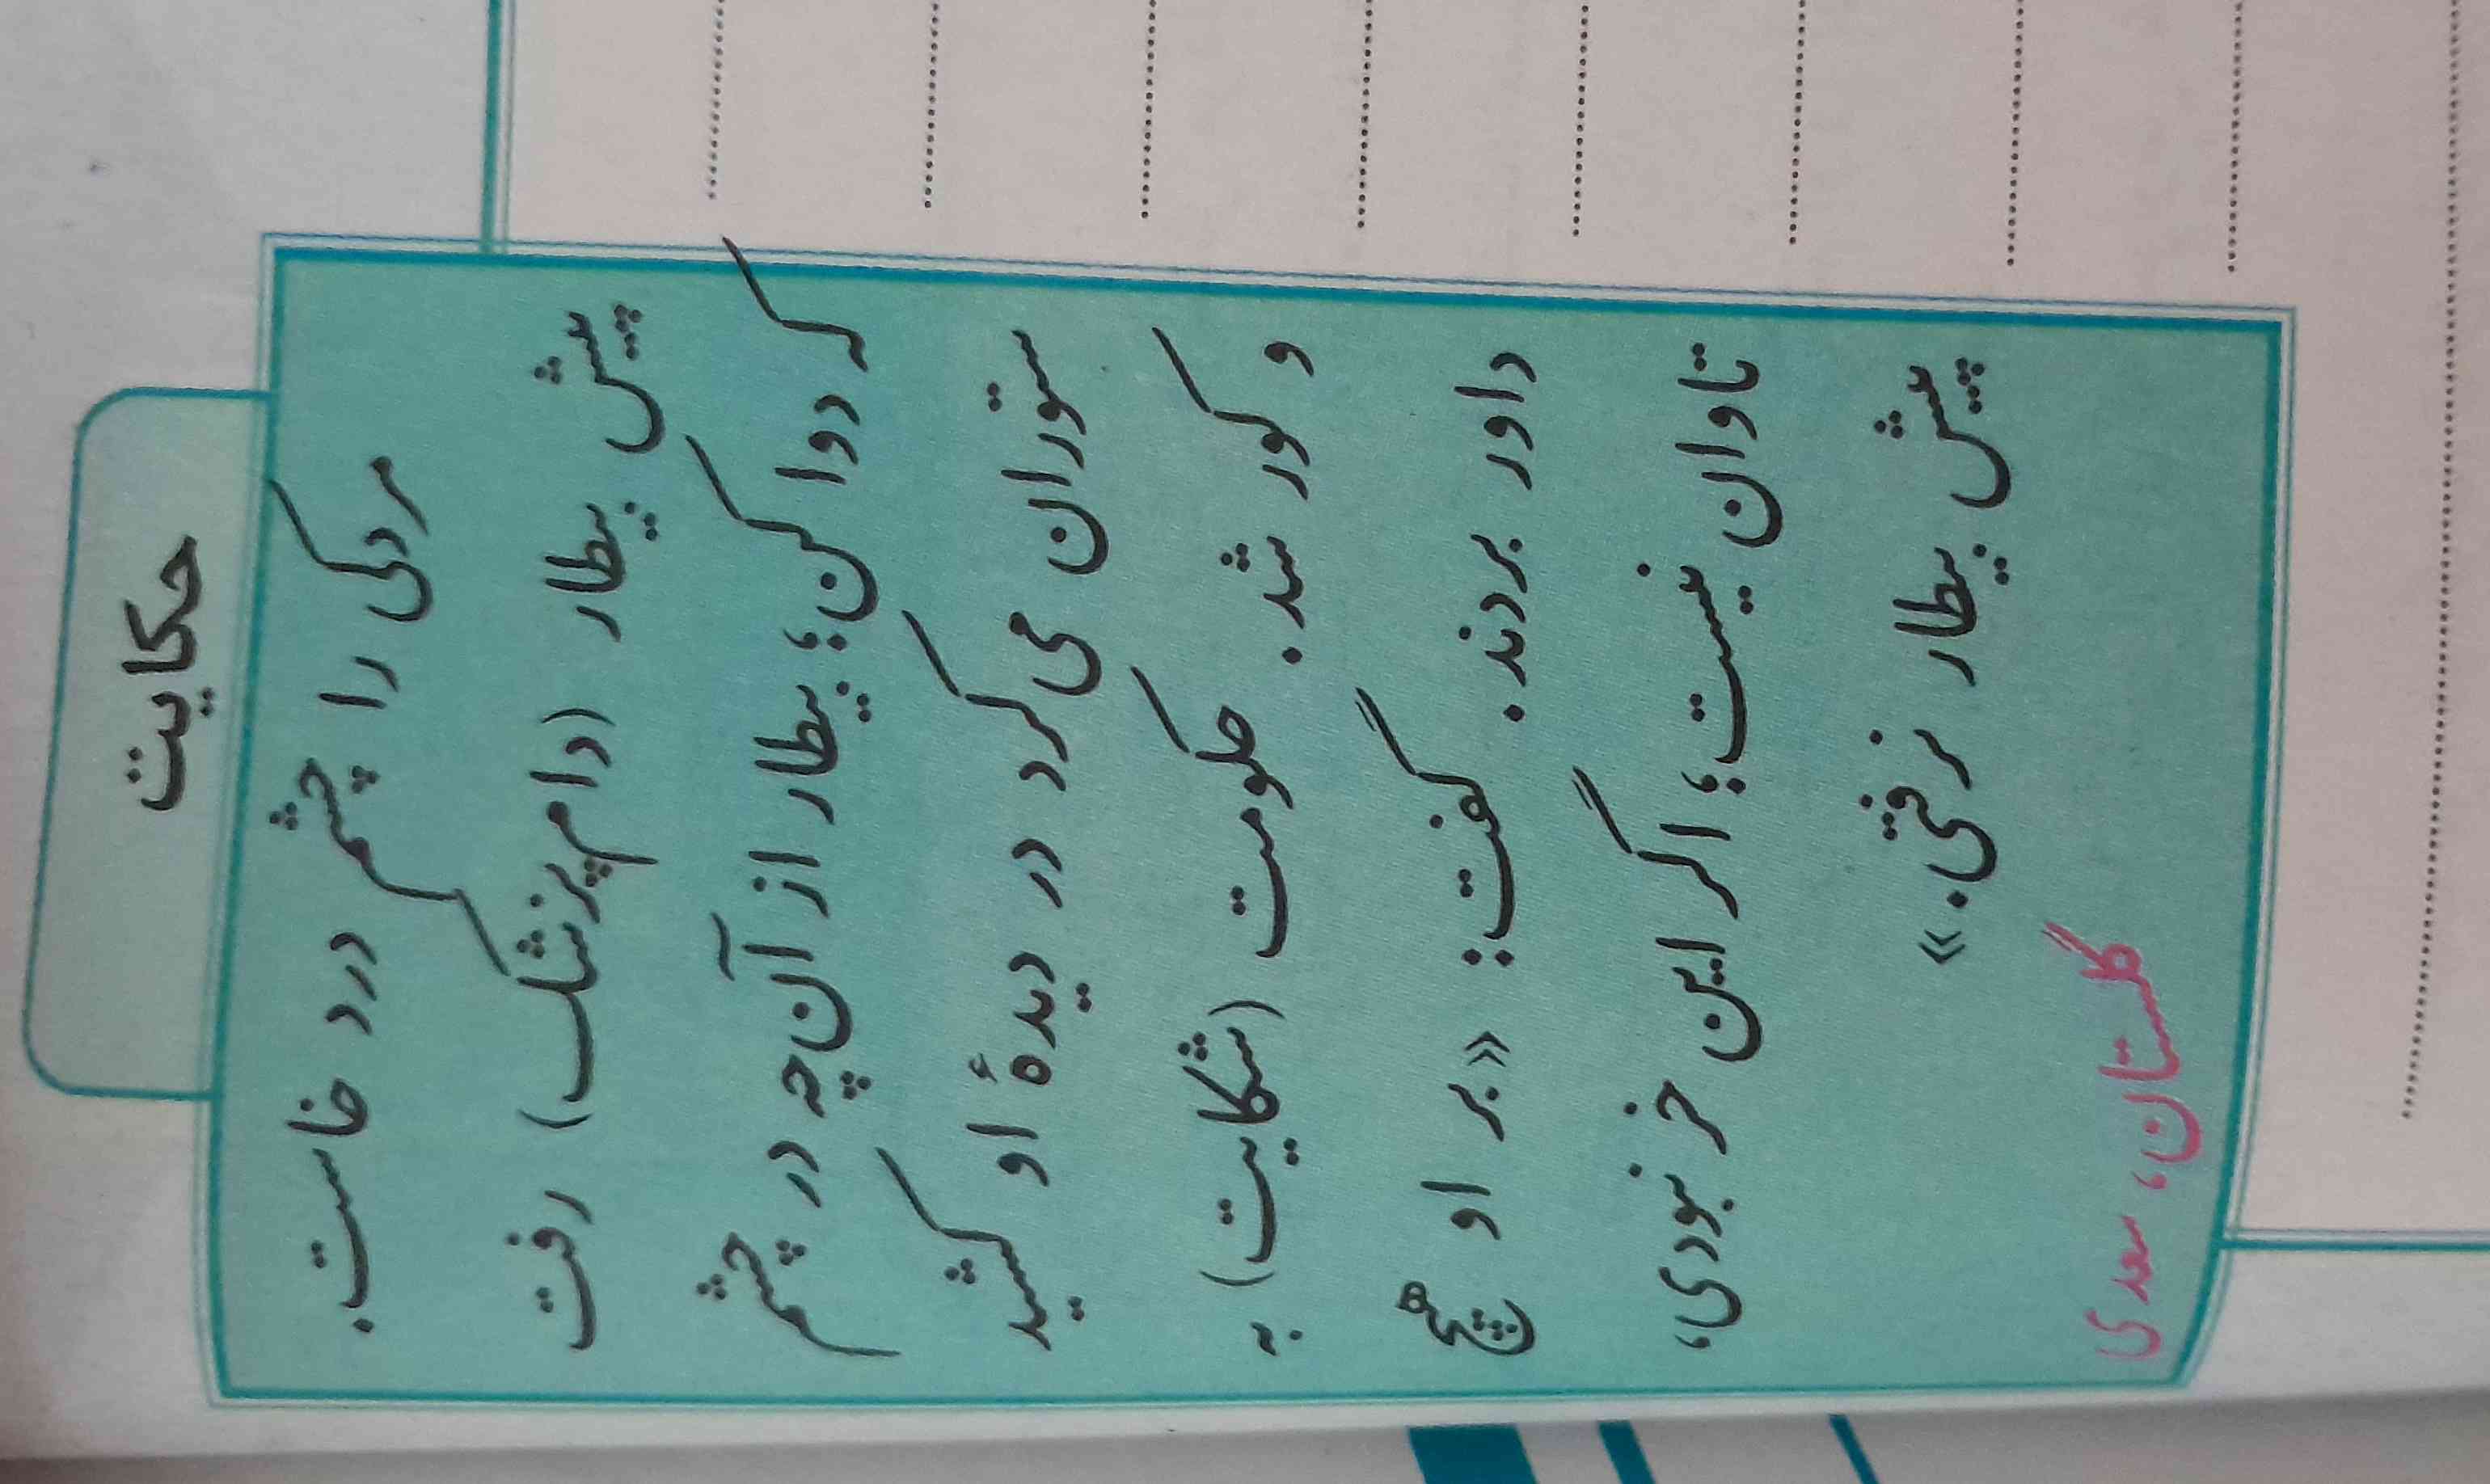 حکایت
مردکی را چشم درد خاست.
پیش بیطار (دام‌پزشک) رفت
که دوا کن؛ بیطار از آن‌چه در چشم
ستوران می‌کرد در دیدهٔ او کشید
و کور شد. حکومت (شکایت) به
داور بردند. گفت: «بر او هیچ
تاوان نیست؛ اگر این خر نبودی،
پیش بیطار نرفتی.»
گلستان، سعدی